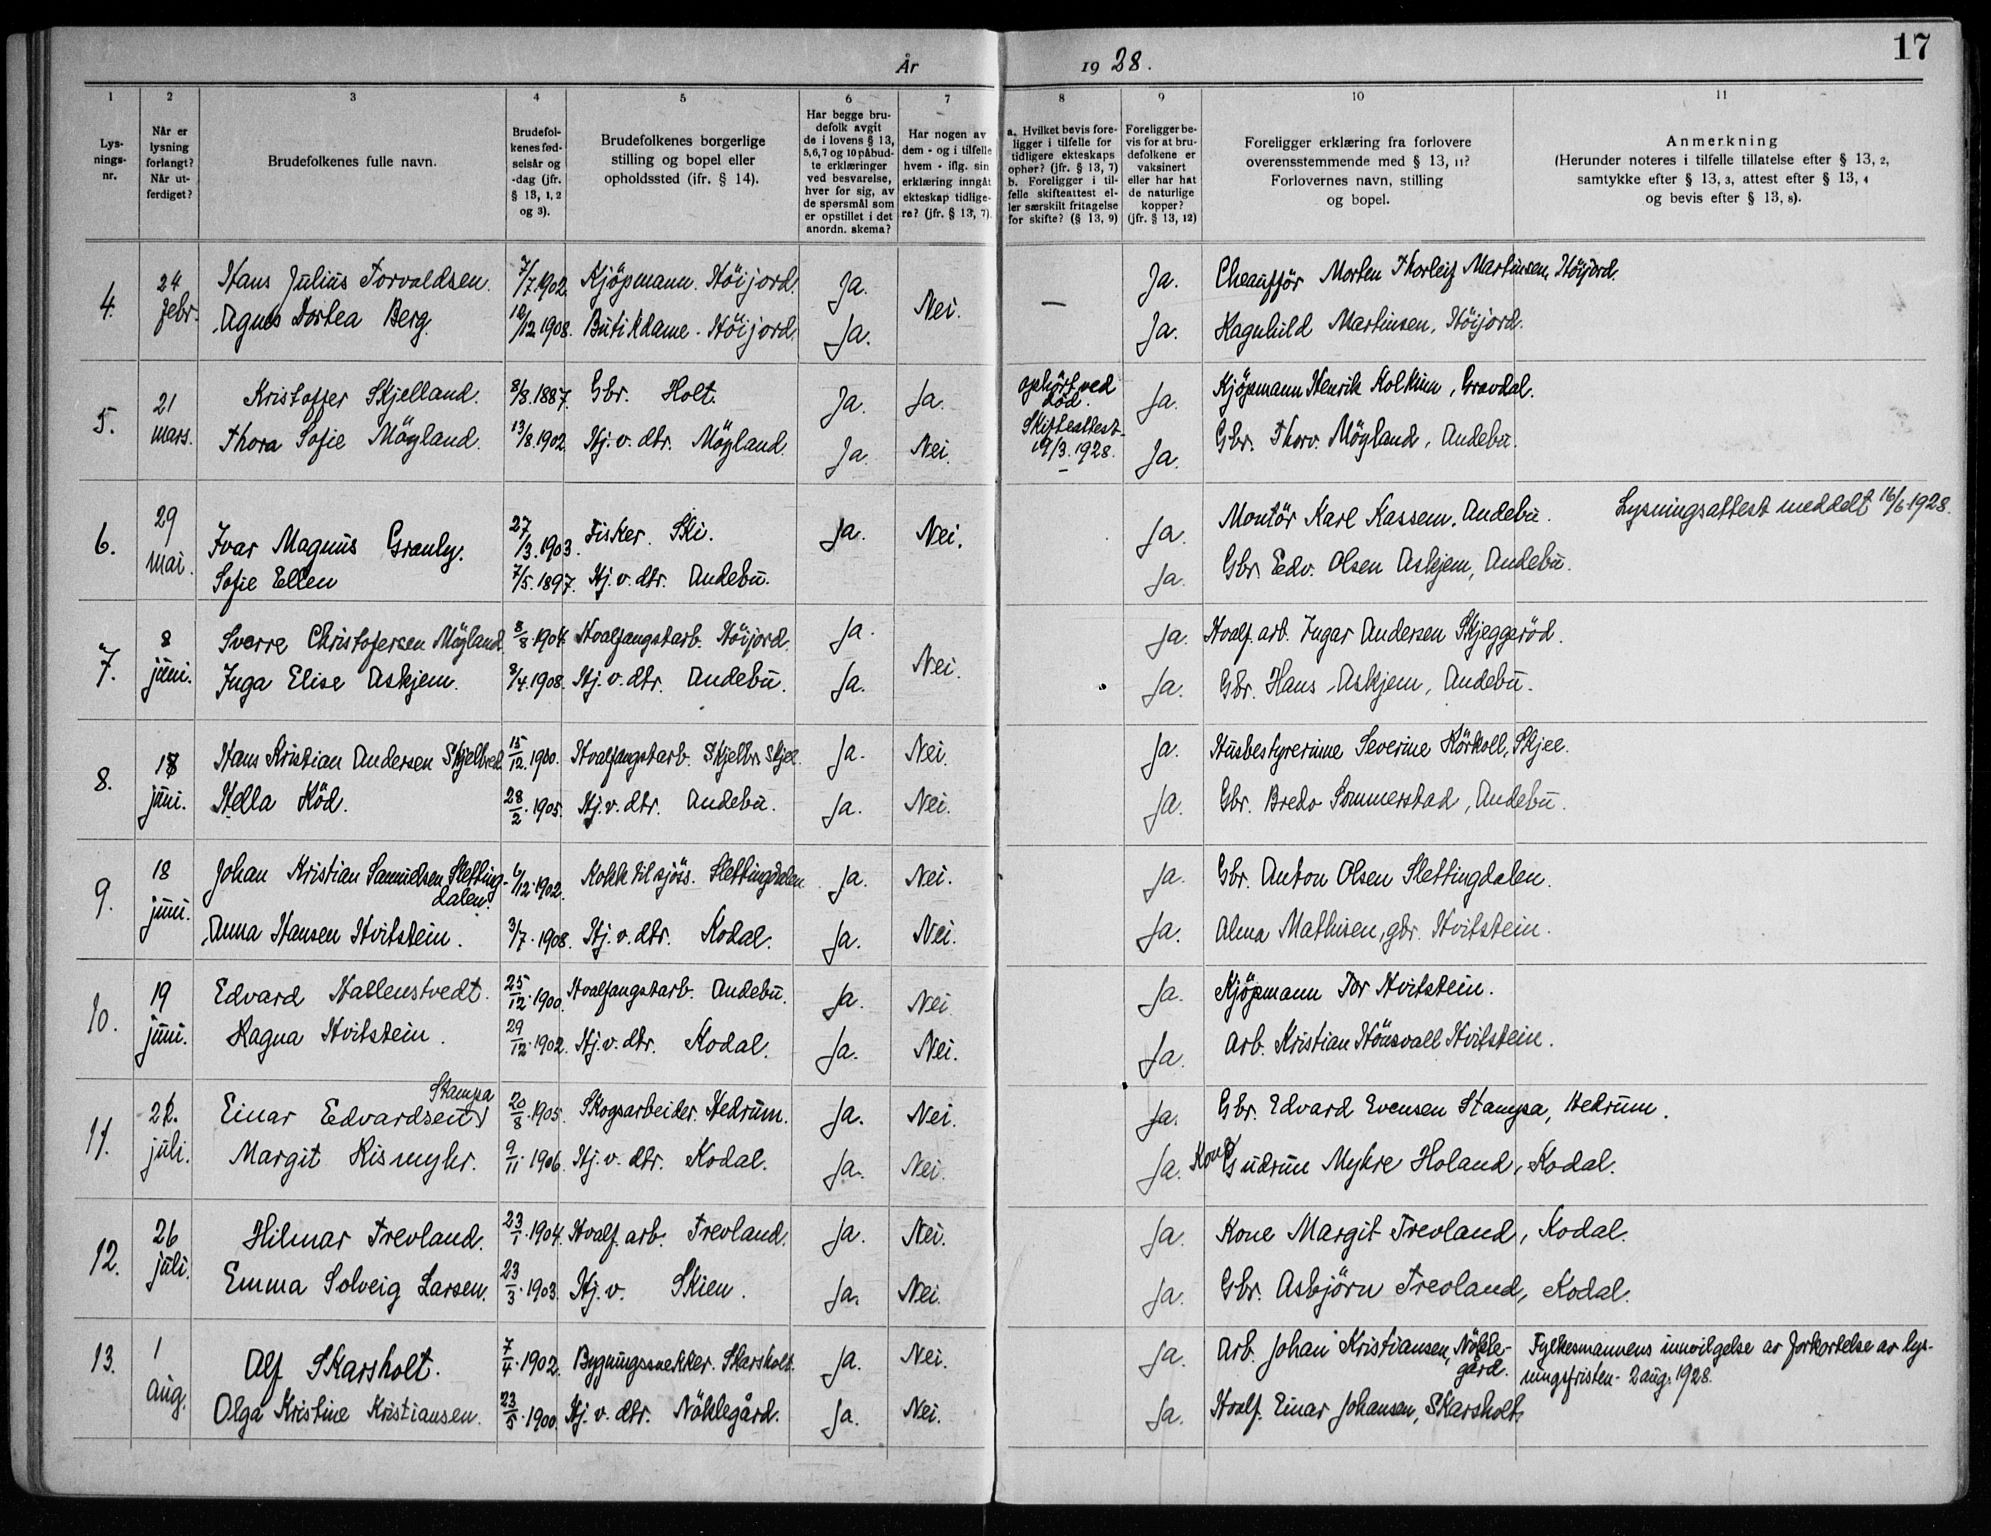 17
År 1928.
1 2 3 4 5 6 7 8 9 10 11
Lys-
nings-
nr.
Når er
lysning
forlangt?
Når ut-
ferdiget?
Brudefolkenes fulle navn.
Brudefol-
kenes fød-
selsår og
-dag (jfr.
§ 13, 1, 2
og 3).
Brudefolkenes borgerlige
stilling og bopel eller
opholdssted (ifr. § 14).
Har begge bru-
defolk avgit
de i lovens § 13,
5,6,7 og 10 påbud-
te erklæringer
ved besvarelse,
hver for sig, av
de spørsmål som
er opstillet i det
anordn. skema?
Har nogen av
dem - og i tilfelle
hvem - iflg. sin
erklæring inngåt
ekteskap tidlige-
re? (jfr. § 13, 7).
a. Hvilket bevis fore-
ligger i tilfelle for
tidligere ekteskaps
ophør? (jfr. § 13, 7)
b. Foreligger i til-
felle skifteattest el-
ler særskilt fritagelse
for skifte? (§ 13, 9)
Foreligger be-
vis for at bru-
defolkene er
vaksinert
eller har hat
de naturlige
kopper?
(jfr. § 13, 12)
Foreligger erklæring fra forlovere
overensstemmende med § 13, 11?
Forlovernes navn, stilling
og bopel.
Anmerkning
(Herunder noteres i tilfelle tillatelse efter § 13, 2,
samtykke efter § 13, 3, attest efter § 13, 4
og bevis efter § 13, 8).
4. 24 febr. Hans Julius Torvaldsen. 7/7.1902. Kjöpmann. Höijord. Ja. Nei. — Ja. Cheaufför Morten Thorleif Martinsen, Höijord.
Agnes Dortea Berg. /12.1908. Butikdame. Höijord. Ja. Ja. Ragnhild Martinsen, Höijord.
5. 21 mars. Kristoffer Skjelland. 8/8.1887. Gbr. Holt. Ja. Ja. ophört ved död. Ja. Kjöpmann Henrik Kolkinn, Gravdal.
Thora Sofie Mögland. 13/8.1902. Hj. v. dtr. Mögland. Ja. Nei. Skifteattest 19/3.1928. Ja. Gbr. Thorv. Mögland, Andebu.
6. 29 mai. Ivar Magnus Granly. 27/3.1903. Fisker. Ski. Ja. Nei. Ja. Montör Karl Kassem. Andebu. Lysningsattest meddelt 16/6 1928.
Sofie Ellen 7/5.1897. Hj. v. dtr. Andebu. Ja. Gbr. Edv. Olsen Askjem, Andebu.
7. 8 juni. Sverre Christofersen Mögland 8/8.1904. Hvalfangstarb. Höijord. Ja. Nei. Ja. Hvalf. arb. Ingar Andersen Skjeggeröd.
Inga Elise Askjem. 8/4.1908. Hj. v. dtr. Andebu. Ja. Ja. Gbr. Hans Askjem, Andebu.
8. 18 juni. Hans Kristian Andersen Skjelbred. 15/12.1900. Hvalfangstarb. Skjelbr. Skjee. Ja. Nei. Ja. Husbestyrerinne Severine Körkoll, Skjee.
Hella Röd. 28/2.1905. Hj. v. dtr. Andebu. Ja. Nei. Ja. Gbr. Bredo Sommerstad, Andebu.
9. 18 juni. Johan Kristian Samuelsen Sletting-
dalen. 6/12.1902. Kokk til sjöss. Slettingdalen Ja. Nei. Ja. Gbr. Anton Olsen Slettingdalen.
Anna Hansen Hvitstein. 3/7.1908. Hj. v. dtr. Kodal. Ja. Nei. Ja. Alma Mathisen, gbr. Hvitstein.
10. 19 juni. Edvard Hallenstvedt. 25/12.1900. Hvalfangstarb. Andebu. Ja. Nei. Ja. Kjöpmann Tor Hvitstein.
Ragna Hvitstein. 29/12.1902. Hj. v. dtr. Kodal. Ja. Nei. Ja. Arb. Kristian Hönsvall Hvitstein.
11. juli. Einar Edvardsen Stampa 20/8.1905. Skogsarbeider. Hedrum. Ja. Nei. Ja. Gbr. Edvard Evensen Stampa, Hedrum.
Margit Rismyhr. 9/11.1906. Hj. v. dtr. Kodal. Ja. Nei. Ja. Kone Gudrun Myhre Holand, Kodal.
12. 26 juli. Hilmar Trevland. 23/1.1904. Hvalf. arb. Trevland. Ja. Nei. Ja. Kone Margit Trevland, Kodal.
Emma Solveig Larsen. 23/3.1903. Hj. v. Skien. Ja. Nei. Ja. Gbr. Asbjörn Trevland, Kodal.
13. 1 aug. Alf Skarsholt. 7/4.1902. Bygningssnekker. Skarsholt. Ja. Nei. Ja. Arb. Johan Kristiansen, Nökle-
gård. Fylkesmannens innvilgelse av forkortelse av lys-
ningsfristen - 2 aug. 1928.
Olga Kristine Kristiansen. 23/5.1900. Hj. v. dtr. Nöklegård. Ja. Nei. Ja. Hvalf. Einar Johansen, Skarsholt.